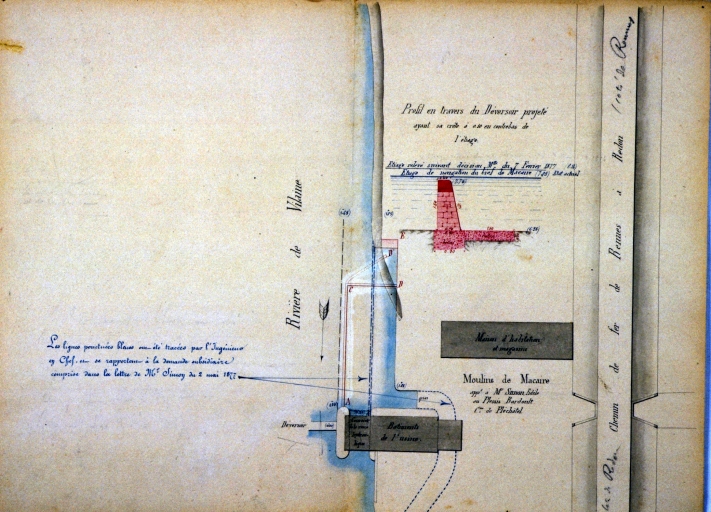 Profil en travers du Déversoir projeté
ayant sa crête à 0.10 en contrebas de
l'étiage.
Etiage relevé suivant décision Mlle du 7 Février 1877
Etiage de navigation du bief de Macaire Etat actuel
Rivière de Vilaine
Les lignes pointées bleues ont été tracées par l'Ingénieur
en Chef et se rapportent à la demande subsidiaire
comprise dans la lettre de Mr Simon du 2 mai 1877
Maison d'habitation
et magasins
Moulins de Macaire
appt à Mr Simon
au Plessis Bardoult
Cne de Pléchâtel
Déversoir
Batiments
de l'usine
Chemin de fer de Rennes à Redon
Côté de Rennes
Côté de Redon
A
B
C
D
E